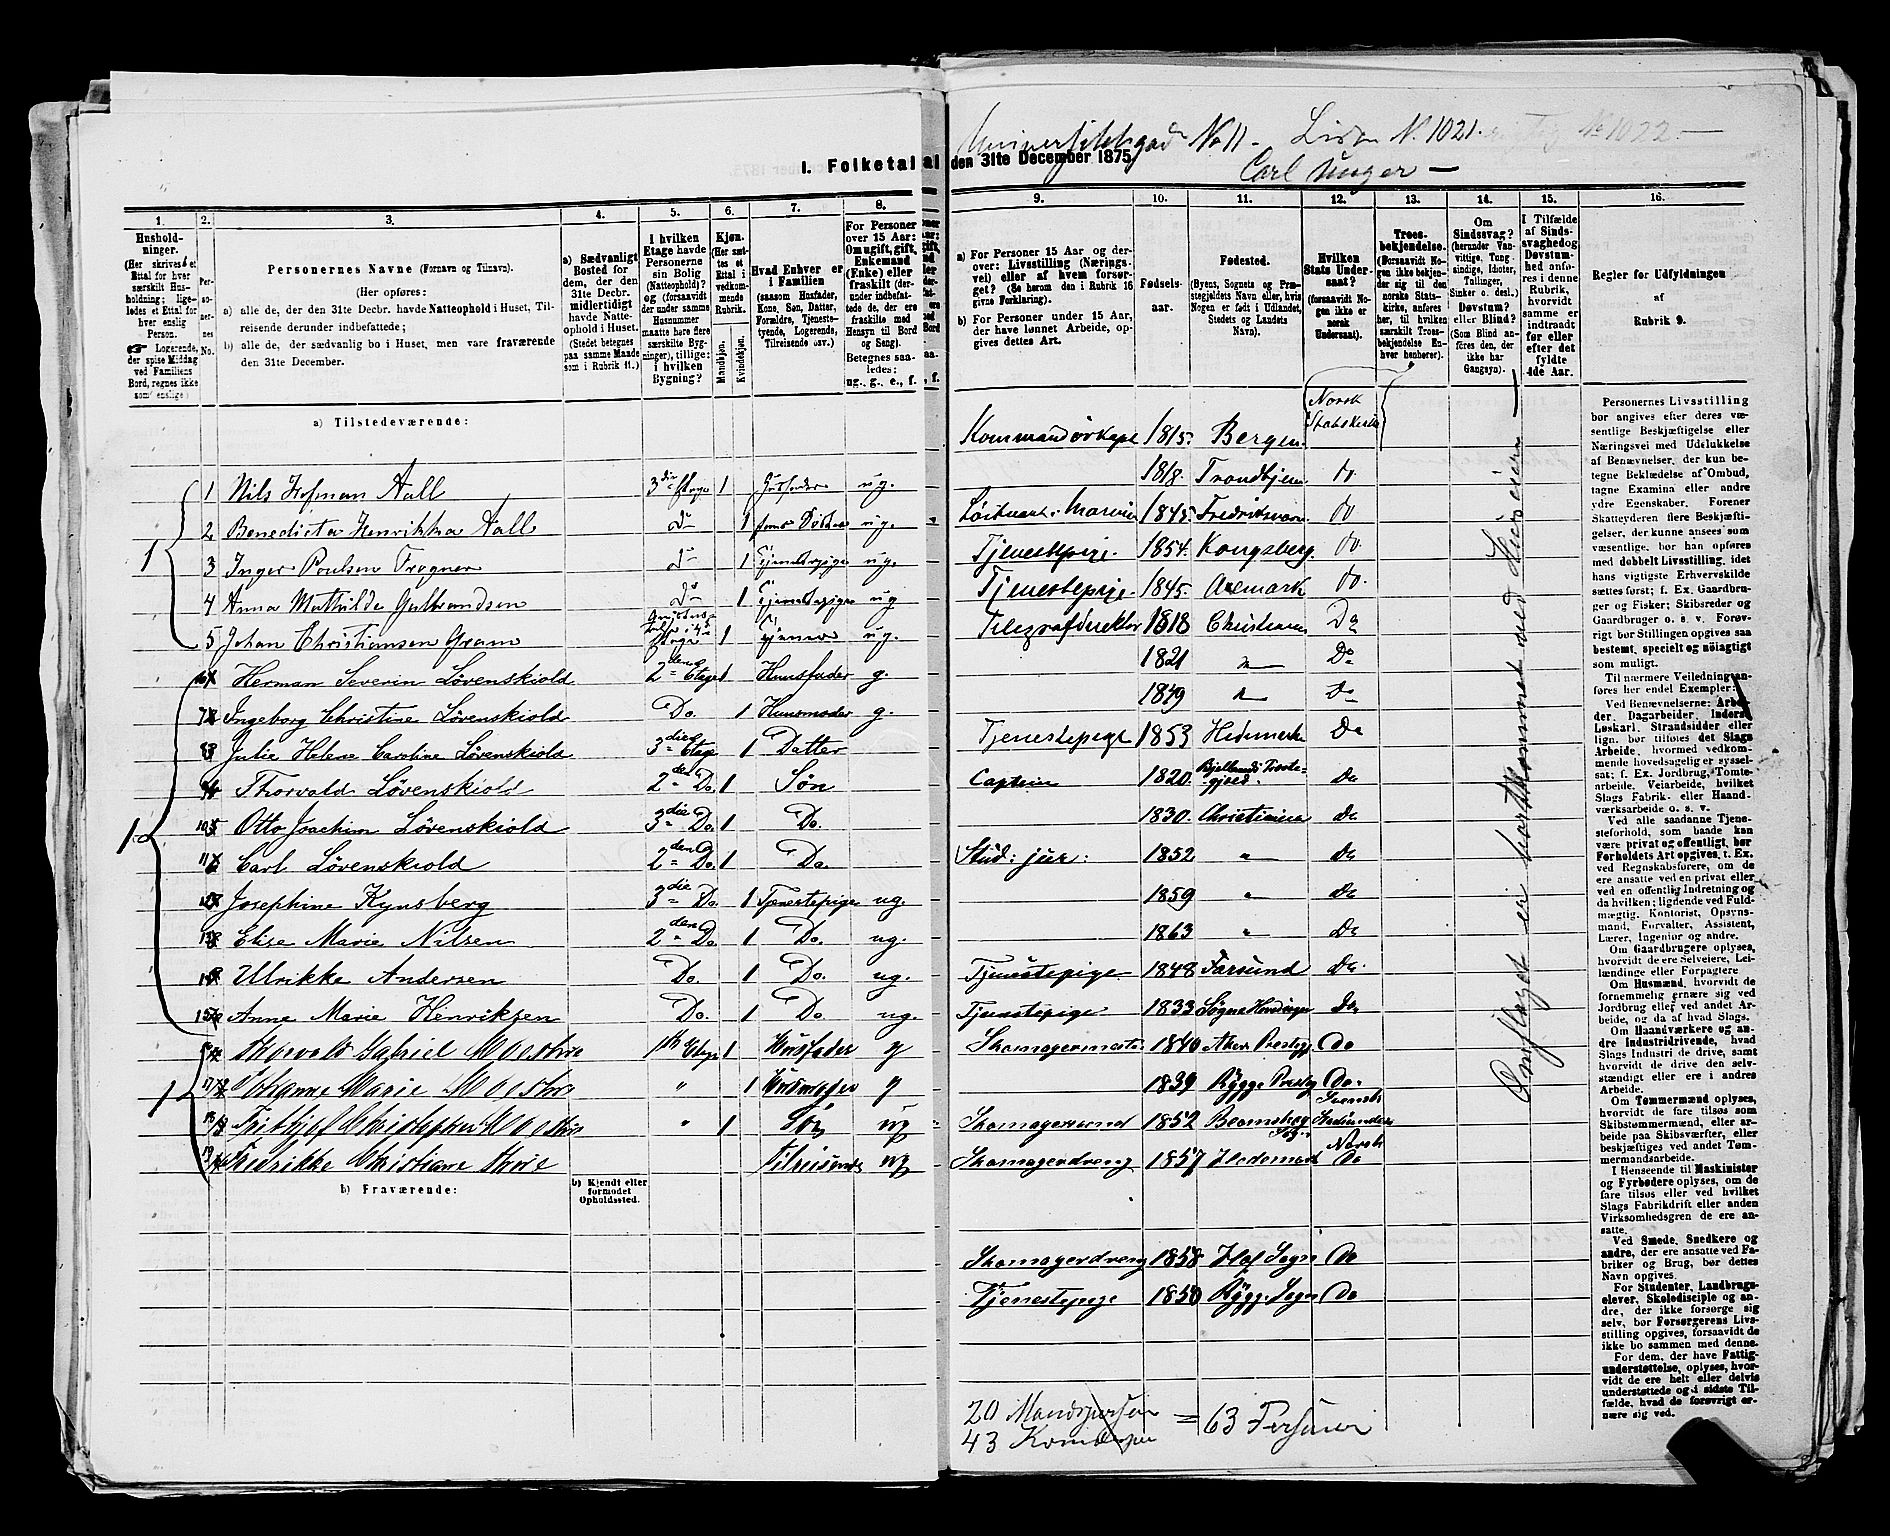 I. Folketal
1.
2.
3.
4.
5.
6.
7.
8.
Hushold-
ninger.
(Her skrives et
Ettal for hver
særskilt Hus-
holdning; lige-
ledes et Ettal for
hver enslig
Person.
Logerende,
der spise Middag
ved Familiens
Bord, regnes ikke
som enslige.)
Per-
so-
ner-
nes
No.
Personernes Navne (Fornavn og Tilnavn).
(Her opføres:
a) alle de, der den 31te Decbr. havde Natteophold i Huset, Til-
reisende derunder indbefattede;
b) alle de, der sædvanlig bo i Huset, men vare fraværende
den 31te December.
a) Sædvanligt
Bosted for
dem, der den
31te Decbr.
midlertidigt
havde Natte-
ophold i Huset.
(Stedet betegnes
paa samme Maade
som i Rubrik 11.)
I hvilken
Etage havde
Personerne
sin Bolig
(Natteophold)?
og (forsaavidt
der under samme
Husnummer
maatte høre flere
særskilte Byg-
ninger), tillige:
i hvilken
Bygning?
Kjøn.
(Her sæt-
tes et
Ettal i
vedkom-
mende
Rubrik.
Mandkjøn.
Kvindekjøn.
Hvad Enhver er
i Familien
(saasom Husfader,
Kone, Søn, Datter,
Forældre, Tjeneste-
tyende, Logerende,
Tilreisende osv.)
For Personer
over 15 Aar:
Om ugift, gift,
Enkemand
(Enke) eller
fraskilt (der-
under indbefat-
tede de, der ere
fraskilte med
Hensyn til Bord
og Seng).
Betegnes saa-
ledes:
ug., g., e., f.
a) Tilstedeværende:
1
1 Nils Hofman Aall 3die Etage 1 Husfader ug.
2 Benedicte Henrikka Aall Do 1 hans Datter ug.
3 Inger Poulsen Trogner Do 1 Tjenestepige ug.
4 Anna Mathilde Gulbrandsen Do 1 Tjenestepige ug
5 Johan Christiansen Gram 1 Tjener ug.
1
6 Herman Severin Løvenskiold 2den Etage 1 Huusfader g.
7 Ingeborg Christine Løvenskiold Do. 1 Huusmoder g.
8 Julie Helene Caroline Løvenskiold 3die Etage 1 Datter
9 Thorvald Løvenskiold 2den Do. 1 Søn
10 Otto Joachim Løvenskiold 3die Do. 1 Do.
11 Carl Løvenskiold 2den Do 1 Do.
12 Josephine Kynsberg 3die Do. 1 Tjenestepige ug.
13 Elise Marie Nilsen 2den Do 1 Do. ug.
14 Ulrikke Andersen Do. 1 Do. ug.
15 Anne Marie Henriksen Do. 1 Do. ug.
1
16 Thorvald Gabriel Moestue 1ste Etage 1 Husfader g
17 Johanne Marie Moestue " 1 Husmoder g
18 Frithjof Christopher Moestue " 1 Søn ug
19 Fredrikke Christiane Tilreisende ug
b) Fraværende:
b) Kjendt eller
formodet
Opholdssted.
Universitetsgade No 11. Listen N. 1021. No 1022
den 31te December 1875
Carl Unger
9.
10.
11.
12.
13.
14.
15.
16.
a) For Personer 15 Aar og der-
over: Livsstilling (Nærings-
vei) eller af hvem forsør-
get? (Se herom den i Rubrik 16
givne Forklaring).
b) For Personer under 15 Aar,
der have lønnet Arbeide, op-
gives dettes Art.
Fødsels-
aar.
Fødested.
(Byens, Sognets og Præ-
stegjeldets Navn eller, hvis
Nogen er født i Udlandet,
Stedets og Landets
Navn).
Hvilken
Stats Under-
saat?
(forsaavidt No-
gen ikke er
norsk
Undersaat).
Troes-
bekjendelse.
(Forsaavidt No-
gen ikke bekjen-
der sig til den
norske Stats-
kirke, anføres
her, til hvilken
særskilt Tros-
bekjendelse En-
hver henhører).
Om
Sindssvag?
(herunder Van-
vittige, Tung-
sindige, Idioter,
Tullinger,
Sinker o. desl.)
Døvstum?
eller Blind?
(Som Blind an-
føres den, der
ikke har
Gangsyn).
I Tilfælde
af Sinds-
svaghed og
Døvstum-
hed anfø-
res i denne
Rubrik,
hvorvidt
samme er
indtraadt
før eller
efter det
fyldte
4de Aar.
Regler for Udfyldningen
af
Rubrik 9.
Kommandørkapt 1815. Bergen Norsk Statskirke
1818. Trondhjem do.
Løitnant i Marinen 1845. Fredriksværn do
Tjenestepige. 1854. Kongsberg. do.
Tjenestepige. 1845. Aremark do.
Telegrafdirektør 1818 Christiania Do
1821 " Do
1849 " Do
Tjenestepige 1853 Hedemarken Do
Captein 1820. Do
1830. Christiania Do
Stud: jur: 1852 " Do
1859 " Do
1863 " Do
Tjenestepige 1848 Farsund Do.
Tjenestepige 1833 Do
Skomagermester 1840 Aker Prestegj Do
1839 Rygge Prestg Do.
Skomagersvend 1852 Svensk
Skomagerdreng 1857 Hedemark Norsk Do
Skomagerdreng 1858 Hof Sogn Do
Tjenestepige 1850 Rygge Sogn Do
20 Mandspersoner
43 Kvindesper = 63 Personer
Personernes Livsstilling
bør angives efter deres væ-
sentlige Beskjæftigelse eller
Næringsvei med Udelukkelse
af Benævnelser, der kun be-
tegne Beklædelse af Ombud,
tagne Examina eller andre
ydre Egenskaber. Forener
Skatteyderen flere Beskjæf-
tigelser, der kunne ansees som
væsentlige, bør han opføres
med dobbelt Livsstilling, idet
hans vigtigste Erhvervskilde
sættes først; f. Ex. Gaardbru-
ger og Fisker; Skibsreder og
Gaardbruger o. s. v. Forøv-
rigt bør Stillingen opgives saa
bestemt, specielt og nøiagtigt
som muligt.
Til nærmere Veiledning an-
føres her endel Exempler:
Ved Benævnelserne: Arbei-
der, Dagarbeider, Inderst,
Løskarl, Strandsidder eller
lign. bør tilføies det Slags
Arbeide, hvormed vedkom-
mende hovedsagelig er syssel-
sat; f. Ex. Jordbrug, Tomte-
arbeide, Veiarbeide, hvilket
Slags Fabrik- eller Haand-
værksarbeide o. s. v.
Ved alle saadanne Tjene-
steforhold, som baade kan
være privat og offentligt, bør
Forholdets Art opgives, t. Ex.
ved Regnskabsførere, om de
ere ansatte ved en privat eller
ved en offentlig Indretning og
da hvilken; lignende ved Fuld-
mægtig, Kontorist, Opsyns-
mand, Forvalter, Assistent,
Lærer, Ingeniør og andre.
Om Gaardbrugere oplyses,
hvorvidt de ere Selveiere, Lei-
lændinge eller Forpagtere
Om Husmænd, hvorvidt de
fornemmelig ernære sig ved
Jordbrug eller ved andet Ar-
beide, og da af hvad Slags.
Om Haandværkere og an-
dre Industridrivende, hvad
Slags Industri de drive, samt
hvorvidt de drive den selv-
stændigt eller ere i andres
Arbeide.
Om Tømmermænd oplyses,
hvorvidt de fare tilsøs som
Skibstømmermænd, eller ar-
beide paa Skibsværfter, eller
beskjæftiges ved andet Tøm-
mermandsarbeide.
I Henseende til Maskinister
og Fyrbødere oplyses, om de
fare tilsøs eller ved hvilket
Slags Fabrikdrift eller anden
Virksomhedsgren de ere an-
satte.
Ved Smede, Snedkere og
andre, der ere ansatte ved Fa-
briker og Brug, bør dettes
Navn opgives.
For Studenter, Landbrugs-
elever, Skoledisciple og an-
dre, der ikke forsørge sig
selv, bør Forsørgerens Livs-
stilling opgives, forsaavidt de
ikke bo sammen med denne.
For dem, der have Fattig-
understøttelse, oplyses, hvor-
vidt de ere helt eller delvis
understøttede og i sidste Til-
fælde, hvad de forøvrigt er-
nære sig ved.